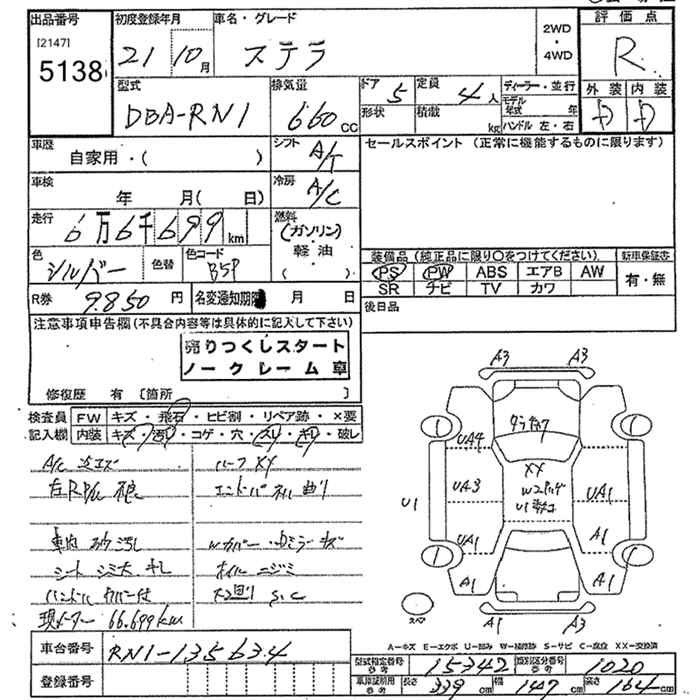 出品番号
[2147]
5138
初度登録年月
21 10月
車名・グレード
ステラ
2WD
・
4WD
評価点
R
外装 内装
D D
型式
DBA-RN1
排気量
660cc
ドア 5
形状
定員 4人
積載 kg
ディーラー・並行
モデル年式 年
ハンドル 左・右
車歴
自家用・( )
シフト A/T
セールスポイント (正常に機能するものに限ります)
車検
年 月( 日)
冷房 A/C
走行
6万6千699km
燃料
(ガソリン)
軽油
( )
色
シルバー
色替
色コード
B5P
装備品(純正品に限り○をつけてください)
PS PW ABS エアB AW
SR ナビ TV カワ
新車保証書
有・無
R券 9.850円
名変通知期限 月 日
後日品
注意事項申告欄(不具合内容等は具体的に記入して下さい)
売りつくしスタート
ノークレーム車
修復歴 有 〔箇所 〕
検査員
記入欄
FW キズ・飛石・ヒビ割・リペア跡・×要
内装 キズ・汚レ・コゲ・穴・スレ・キレ・破レ
左RP/W 不良
シート シミ大 キレ
ハンドル カバー付
現メーター 66.699km
Wカバー・ドアミラーキズ
オイル ニジミ
下廻り S.C
A3 A3
UA4
UA3
UA1
A1
U1
XX
UA1
A1
A1
A1 A3
スペア
A=キズ E=エクボ U=凹み W=補修跡 S=サビ C=腐食 XX=交換済
車台番号
RN1-135634
登録番号
型式指定番号
参考
15342
類別区分番号
参考
1020
車庫証明用
参考
長さ 339cm 幅 147cm 高さ 164cm